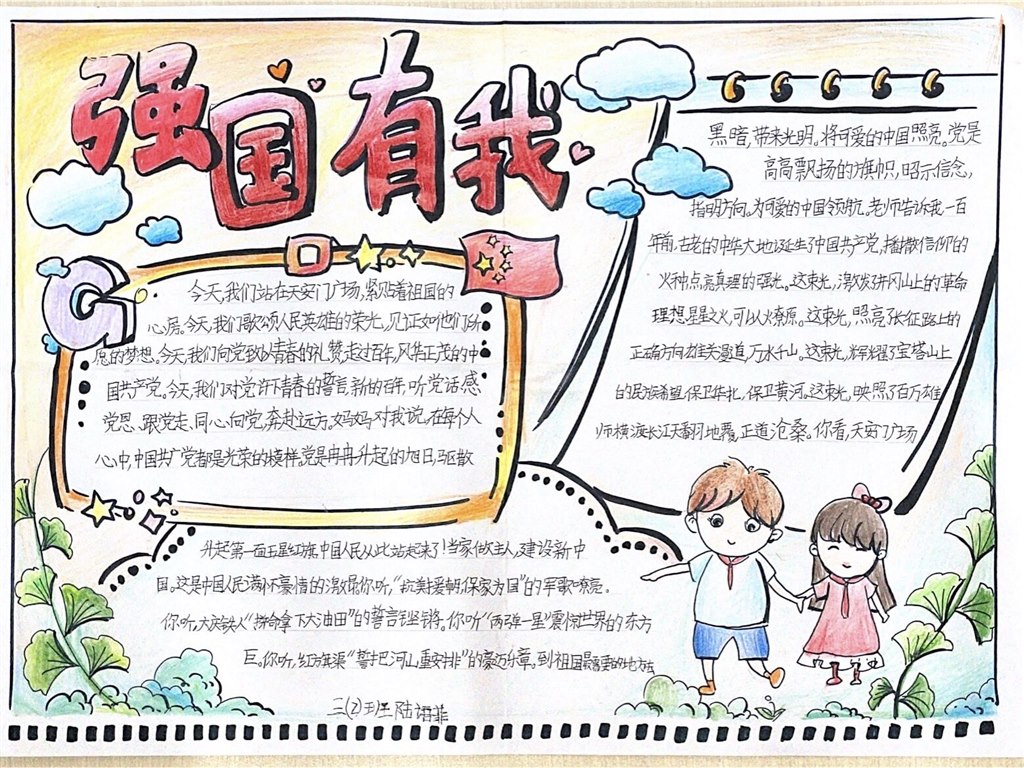 强国有我
今天,我们站在天安门广场,紧贴着祖国的
心房。今天,我们歌颂人民英雄的荣光,见证如他们所
愿的梦想。今天,我们向党致以青春的礼赞走过百年,风华正茂的中
国共产党。今天,我们对党许下青春的誓言,新的百年,听党话、感
党恩、跟党走、同心向党,奔赴远方。妈妈对我说,在每个人
心中,中国共产党都是光荣的模样。党是冉冉升起的旭日,驱散
黑暗,带来光明。将可爱的中国照亮。党是
高高飘扬的旗帜,昭示信念,
指明方向。为可爱的中国领航。老师告诉我一百
年前,古老的中华大地诞生了中国共产党,播撒信仰的
火种点亮真理的强光。这束光,激发了井冈山上的革命
理想星星之火,可以火燎原。这束光,照亮了长征路上的
正确方向雄关漫道,万水千山。这束光,辉耀了宝塔山上
的民族希望,保卫华北,保卫黄河。这束光,映照了百万雄
师横渡长江天翻地覆,正道沧桑。你看,天安门广场
升起第一面五星红旗,中国人民从此站起来了!当家做主人,建设新中
国。这是中国人民满怀豪情的激昂你听,“抗美援朝保家为国”的军歌嘹亮。
你听,大庆铁人“拼命拿下大油田”的誓言铿锵。你听“两弹一星”震惊世界的东方
巨。你听,红旗渠“誓把河山重安排”的豪迈乐章,到祖国最需要的地方去
三(2)班 陆语菲